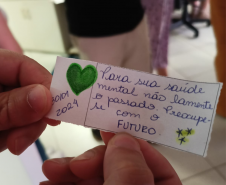 Para sua saúde
mental não lamente
o passado. Preocupe-
se com o
FUTURO
2024